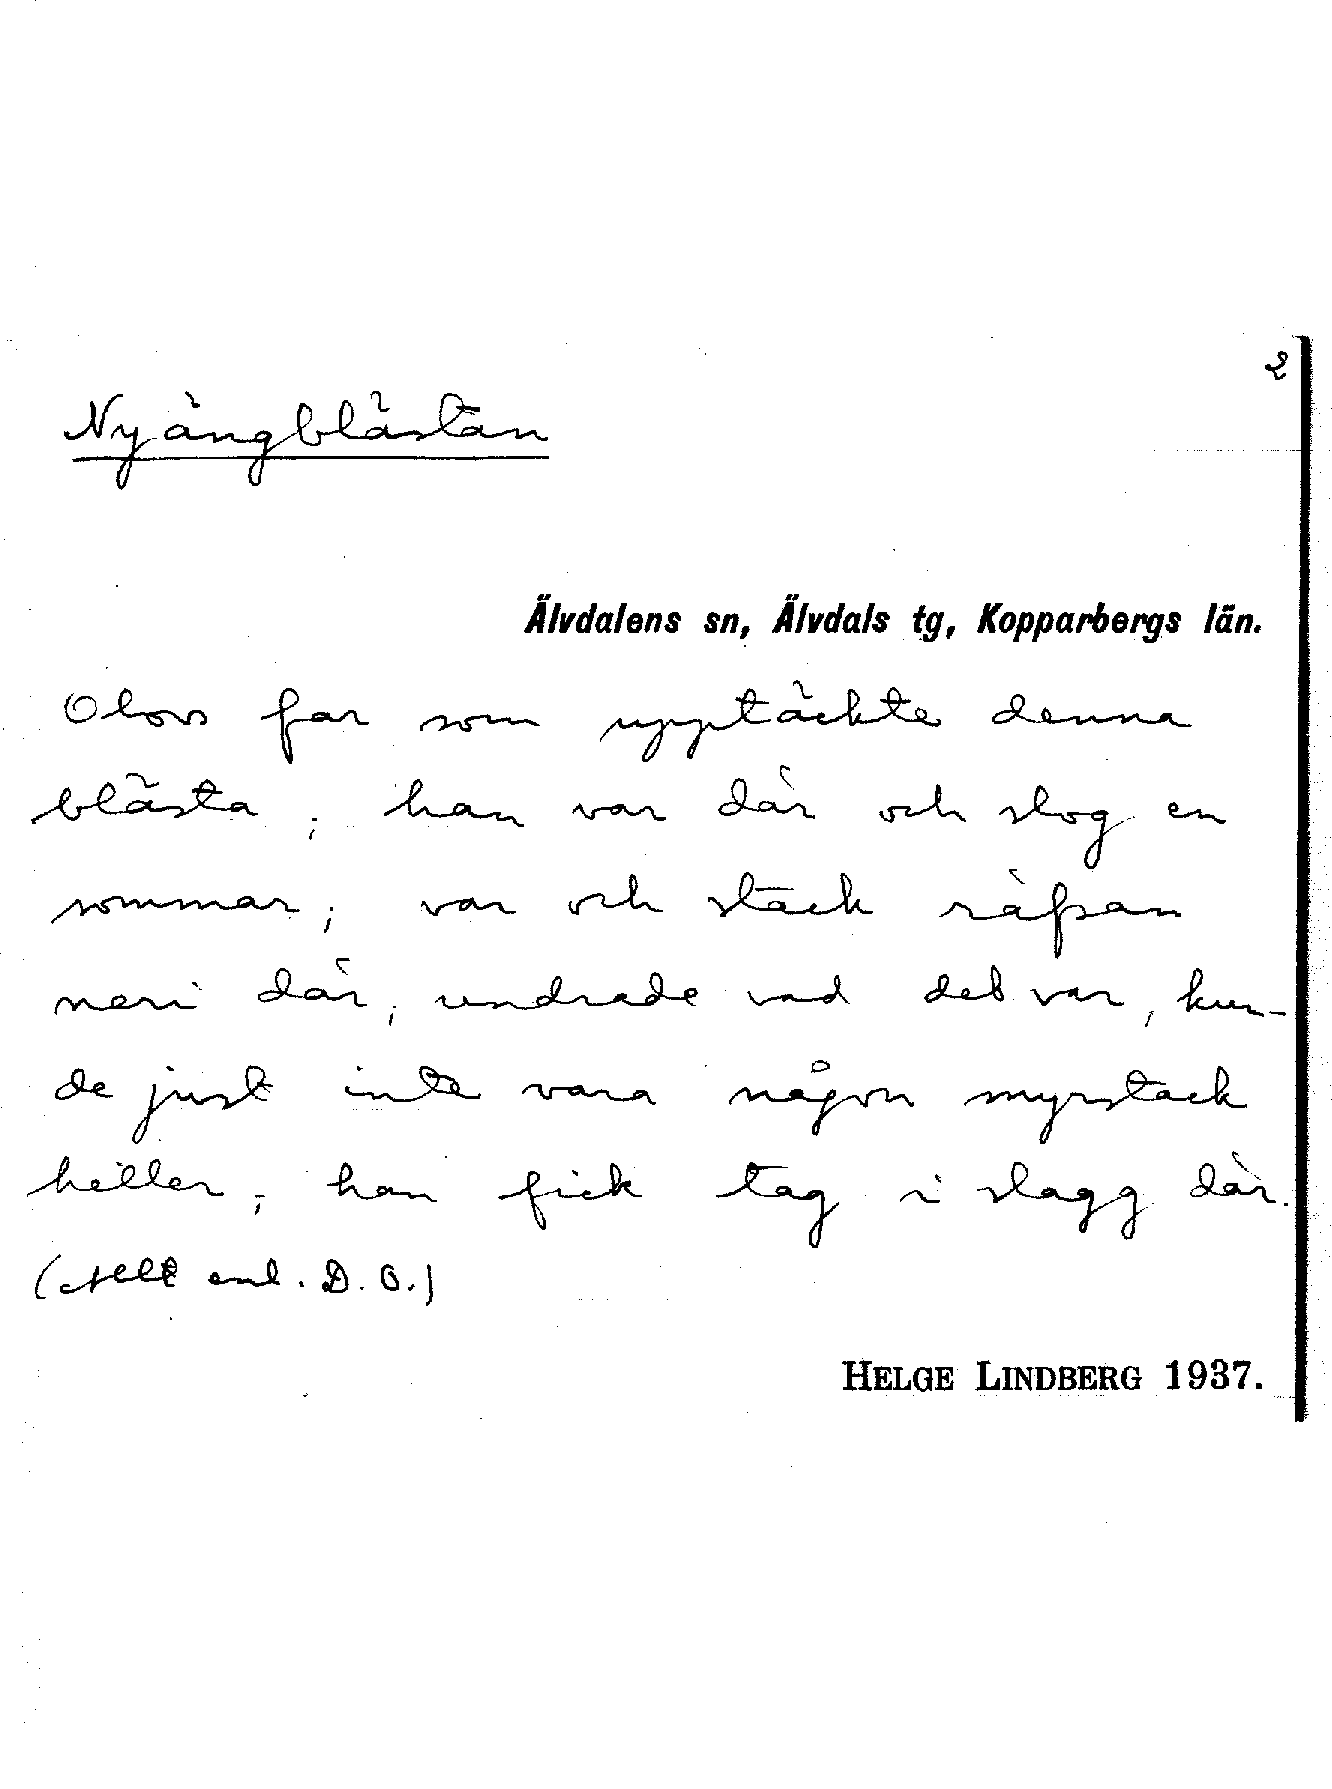 2
Nyängblästan
Älvdalens sn, Älvdals tg, Kopparbergs län.
Olovs far som upptäckte denna
blästa; han var där och slog en
sommar; var och stack räfsan
neri där; undrade vad det var, kun-
de just inte vara någon myrstack
heller; han fick tag i slagg där.
(Allt enl. D. O.)
HELGE LINDBERG 1937.